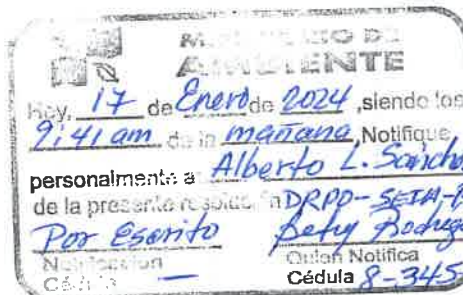 MINISTERIO DE
AMBIENTE
Hoy, 17 de Enero de 2024, siendo las
9:41 am de la mañana, Notifique
personalmente a Alberto L. Sancho
de la presente resolución DRPO-SEIA-
Por Escrito Betsy Rodrigu
Notificación Quien Notifica
Cédula — Cédula 8-345